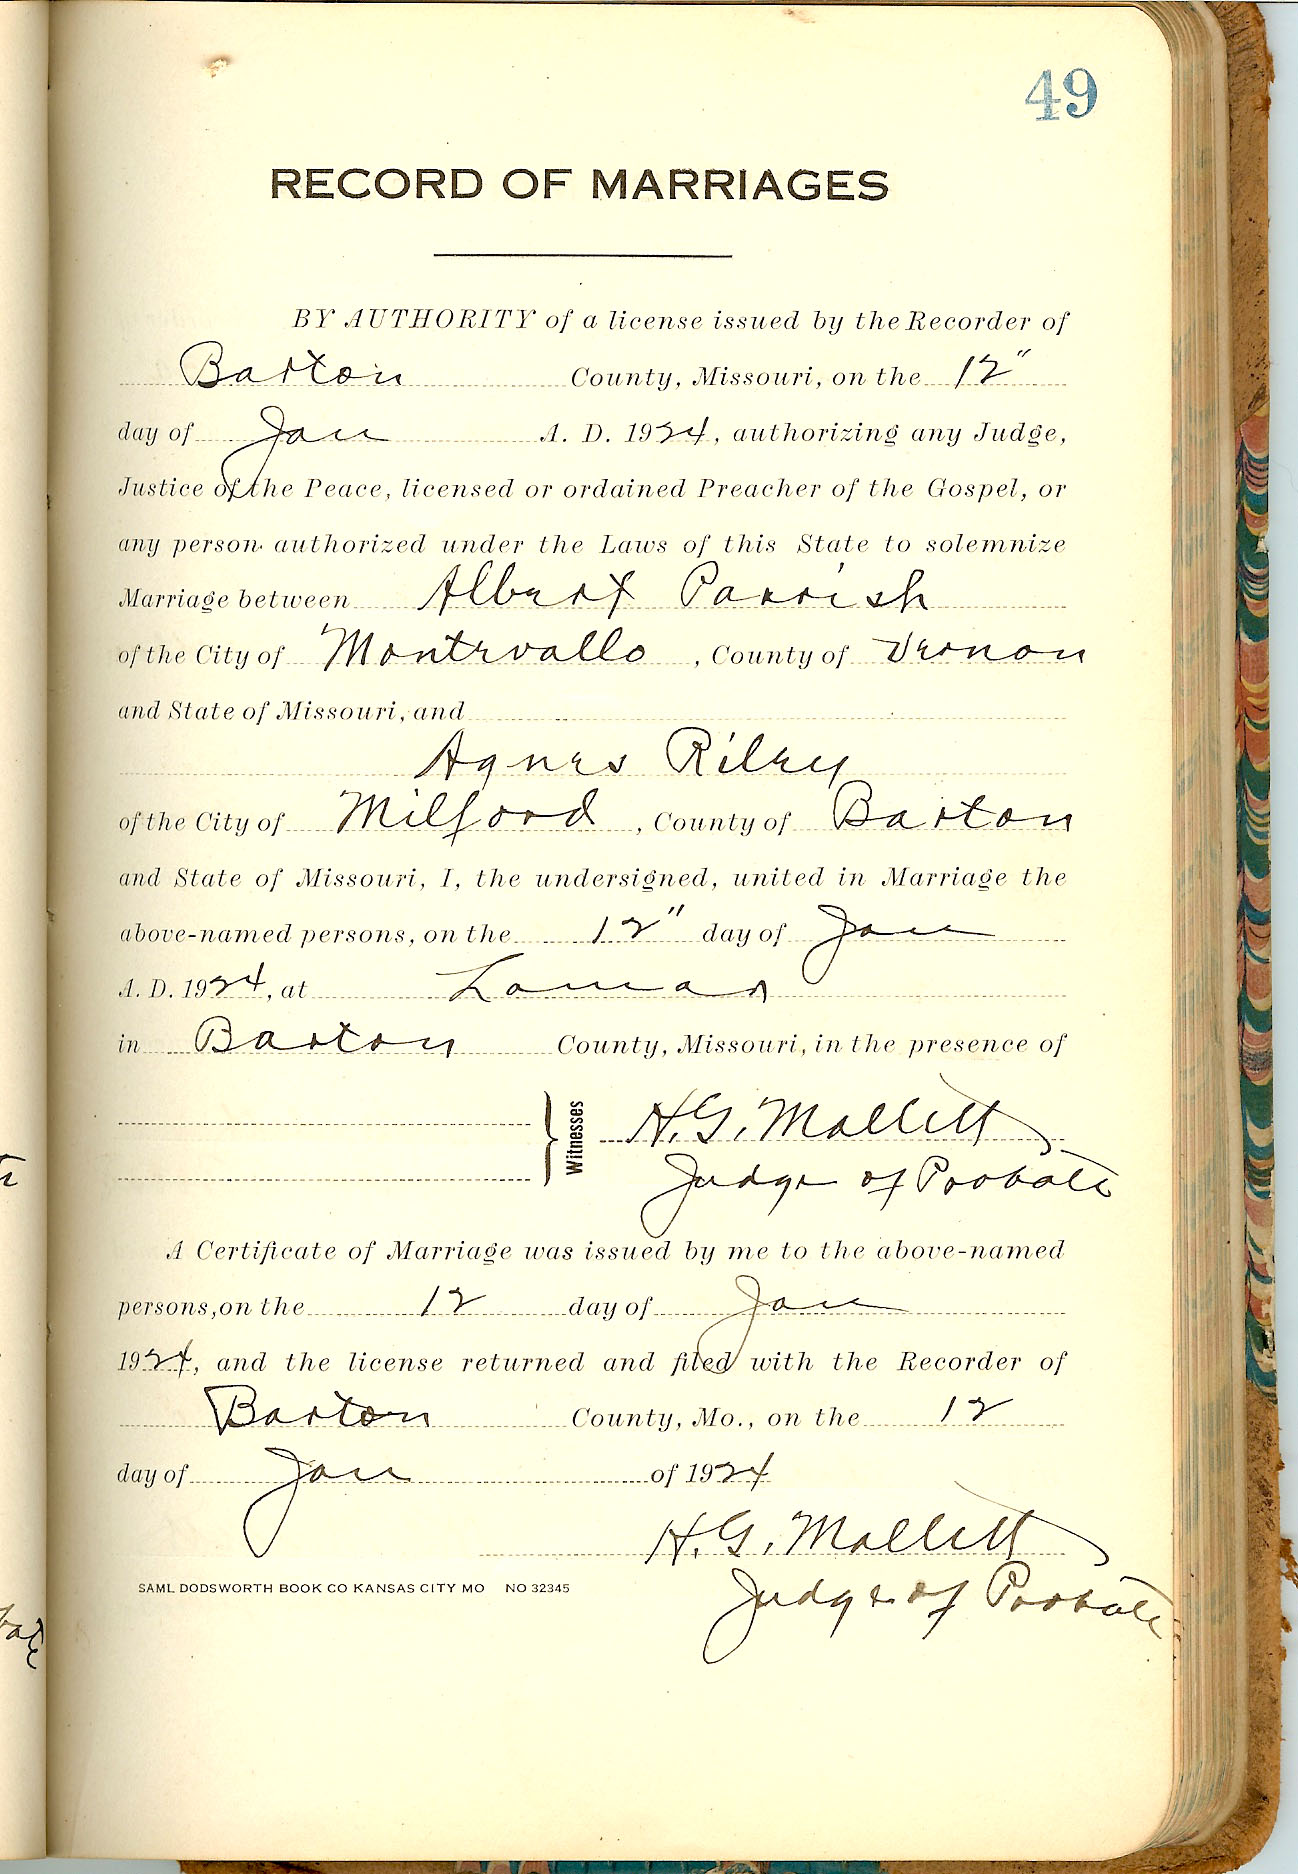 49
RECORD OF MARRIAGES
BY AUTHORITY of a license issued by the Recorder of
Barton County, Missouri, on the 12"
day of Jan A. D. 1924, authorizing any Judge,
Justice of the Peace, licensed or ordained Preacher of the Gospel, or
any person authorized under the Laws of this State to solemnize
Marriage between Albert Parrish
of the City of Montevallo, County of Vernon
and State of Missouri, and
Agnes Riley
of the City of Milford, County of Barton
and State of Missouri, I, the undersigned, united in Marriage the
above-named persons, on the 12" day of Jan
A. D. 1924, at Lamar
in Barton County, Missouri, in the presence of
Witnesses H. G. Mallett
Judge of Probate
A Certificate of Marriage was issued by me to the above-named
persons, on the 12 day of Jan
1924, and the license returned and filed with the Recorder of
Barton County, Mo., on the 12
day of Jan of 1924
H. G. Mallett
SAML DODSWORTH BOOK CO KANSAS CITY MO NO 32345
Judge of Probate